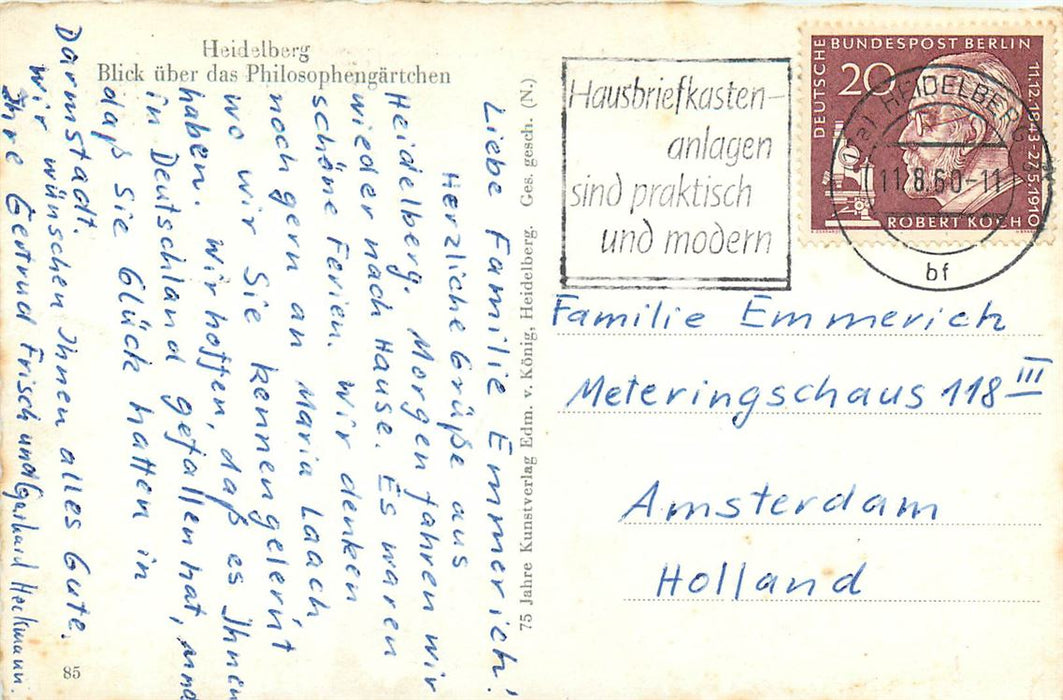 Heidelberg
Blick über das Philosophengärtchen
Liebe Familie Emmerich!
Herzliche Grüße aus
Heidelberg. Morgen fahren wir
wieder nach Hause. Es waren
schöne Ferien. Wir denken
noch gern an Maria Laach,
wo wir Sie kennengelernt
haben. Wir hoffen, daß es Ihnen
in Deutschland gefallen hat, und
daß Sie Glück hatten in
Darmstadt.
Wir wünschen Ihnen alles Gute.
Ihre Gertrud Frisch und Gerhard Heckmann.
85
75 Jahre Kunstverlag Edm. v. König, Heidelberg. Ges. gesch. (N.)
Hausbriefkasten-
anlagen
sind praktisch
und modern
DEUTSCHE BUNDESPOST BERLIN
20
11.12.1843-27.5.1910
ROBERT KOCH
HEIDELBERG
11.8.60-11
bf
Familie Emmerich
Meteringschaus 118 III
Amsterdam
Holland